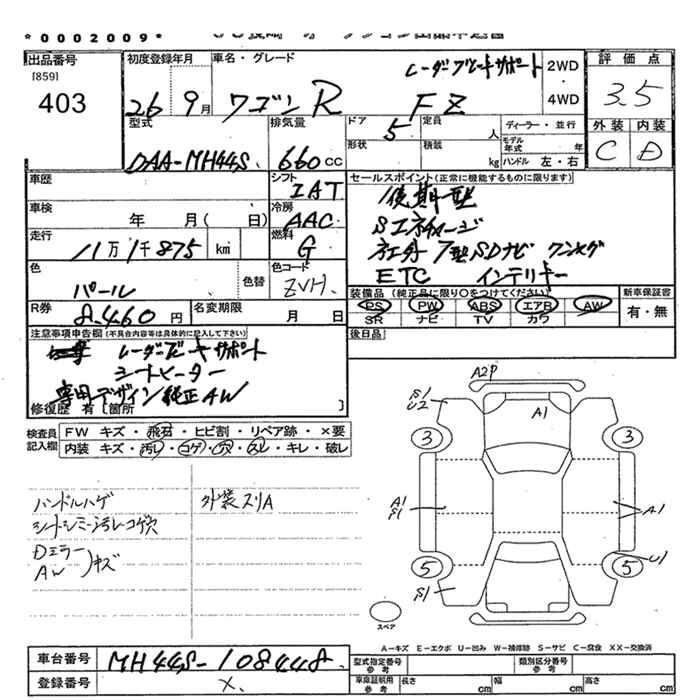 *0002009*
出品番号 初度登録年月 車名・グレード 評価点
[859] レーダーブレーキサポート 2WD
403 26 9月 ワゴンR FZ 4WD 3.5
型式 排気量 ドア 5 定員 人 ディーラー・並行 外装 内装
DAA-MH44S 660cc 形状 積載 kg モデル年式 年 C D
ハンドル 左・右
車歴 シフト IAT セールスポイント(正常に機能するものに限ります)
後期型
車検 年 月( 日) 冷房 AAC Sエネチャージ
走行 11万1千875 km 燃料 G 社外 7型SDナビ ワンセグ
ETC インテリキー
色 パール 色替 色コード ZVH 装備品(純正品に限り○をつけてください) 新車保証書
PS PW ABS エアB AW 有・無
R券 8460円 名変期限 月 日 SR ナビ TV カワ
注意事項申告欄(不具合内容等は具体的に記入して下さい) 後日品
レーダーブレーキサポート
シートヒーター
専用デザイン純正AW
修復歴 有[箇所 ]
検査員記入欄 FW キズ・飛石・ヒビ割・リペア跡・×要
内装 キズ・汚レ・コゲ・穴・スレ・キレ・破レ
ハンドルハゲ 外装スリA
シートシミ汚レコゲ穴
Dミラー
AW キズ
A2P
S1
U2
A1
3 3
A1
S1
A1
U1
5 5
S1
スペア
A―キズ E―エクボ U―凹み W―補修跡 S―サビ C―腐食 XX―交換済
車台番号 MH44S-108448 型式指定番号 参考 類別区分番号 参考
登録番号 × 車庫証明用 参考 長さ cm 幅 cm 高さ cm